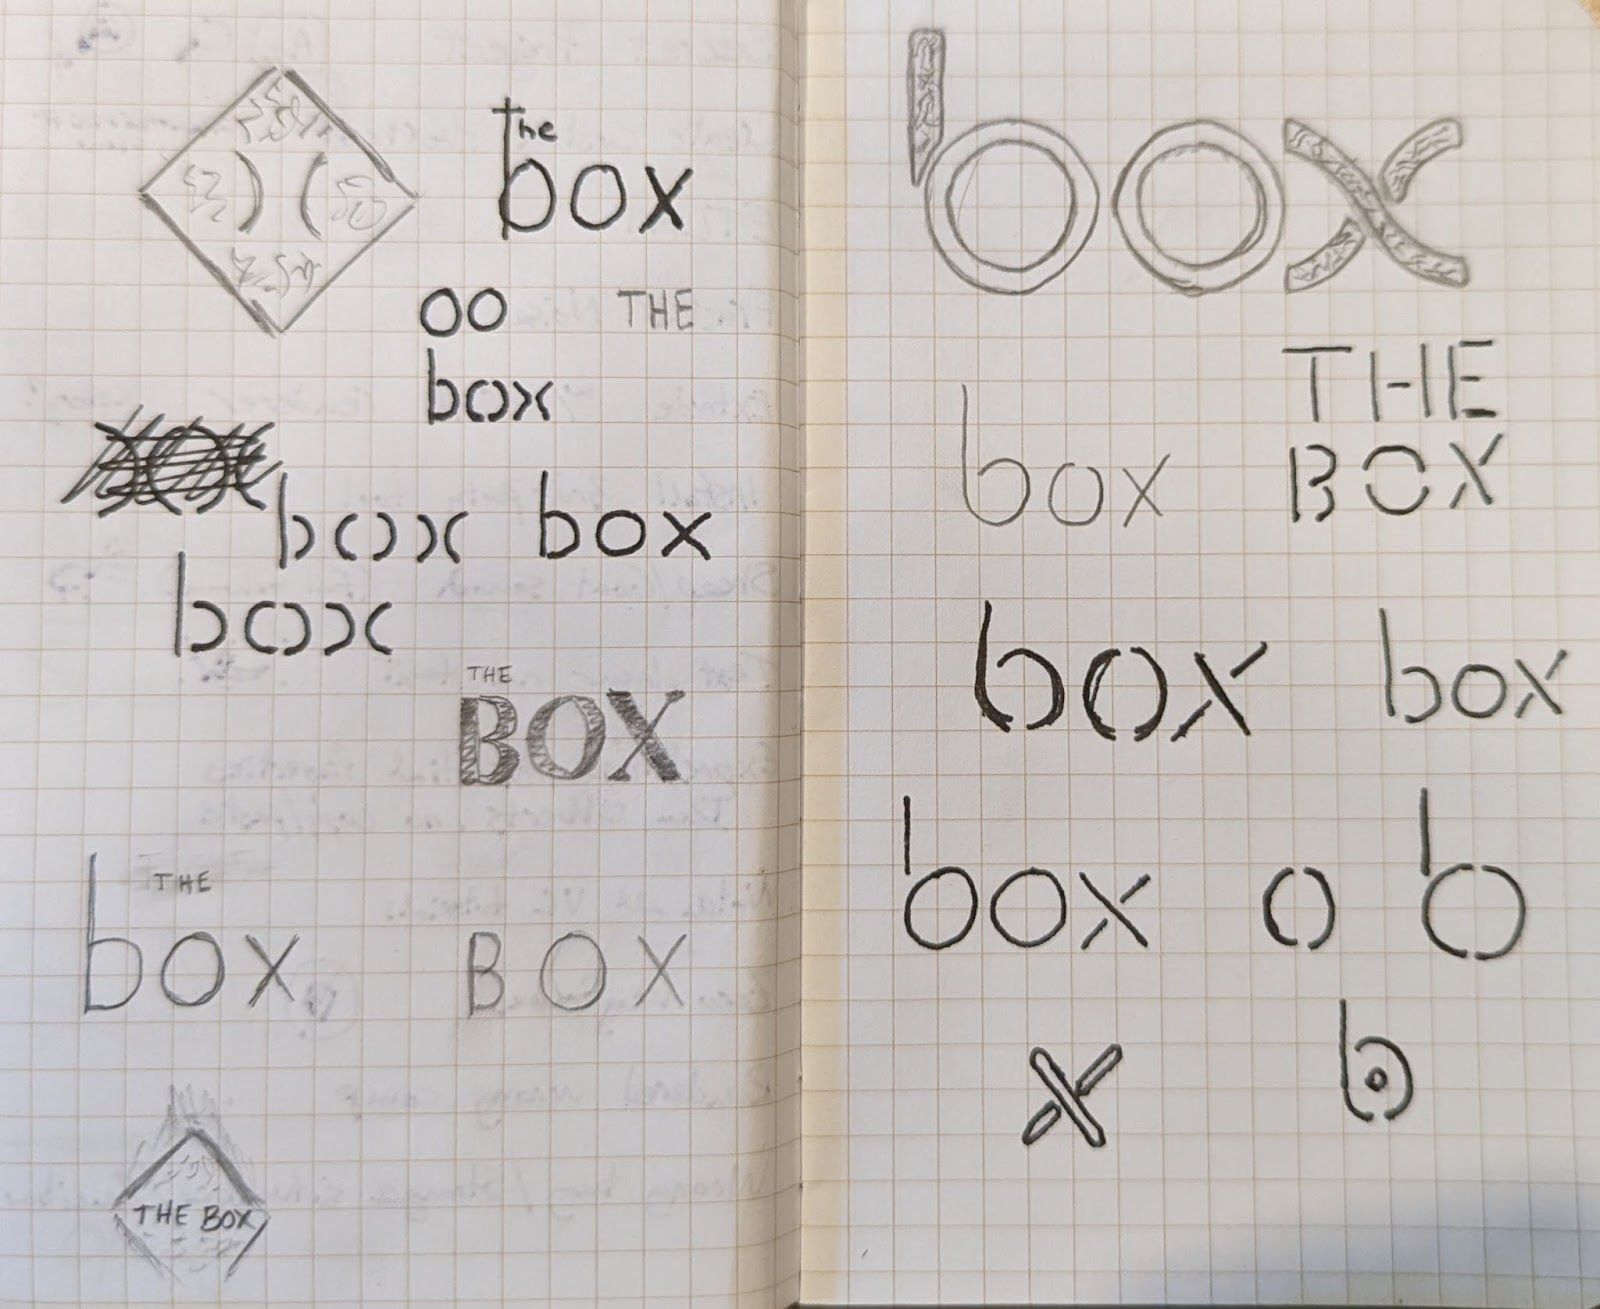 the
box
oo
THE
box
box
box
box
THE
BOX
THE
box
BOX
THE BOX
box
box
THE
BOX
box
box
box
o
b
x
b